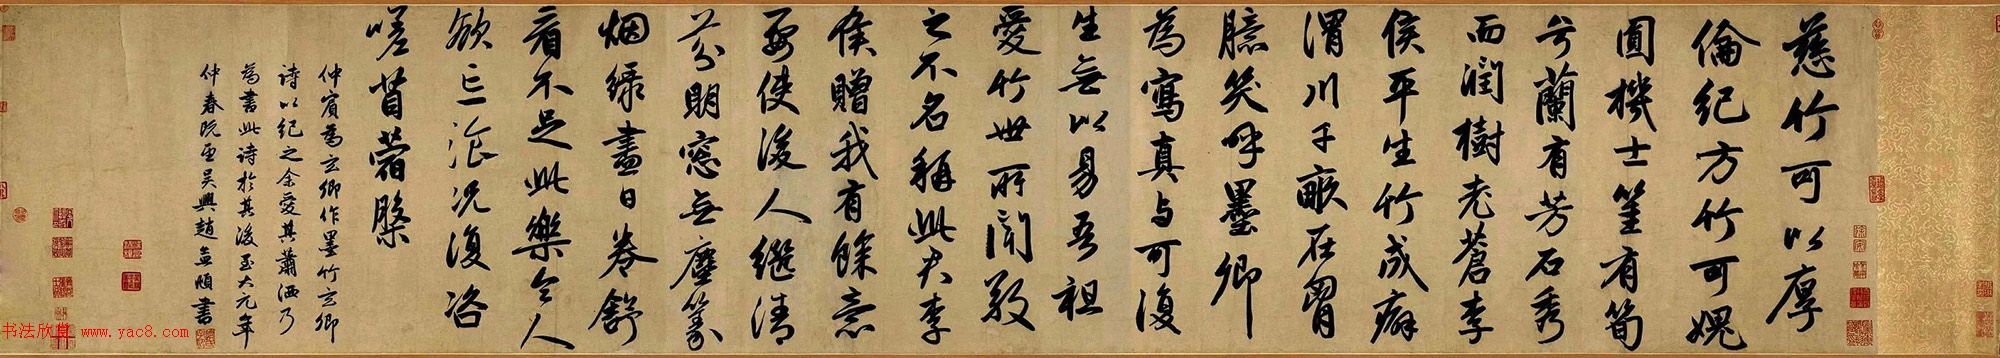 慈竹可以厚
倫紀方竹可媿
圓機士筀有筍
兮蘭有芳石秀
而潤樹老蒼李
侯平生竹成癖
渭川千畝在胷
臆笑呼墨卿
為寫真与可復
生無以易吾祖
愛竹世所聞敬
之不名稱此君李
侯贈我有餘意
要使後人繼清
芬明窓無塵篆
烟綠盡日卷舒
看不足此樂令人
欲忘飡況復咨
嗟苜蓿槃
仲賓為玄卿作墨竹玄卿
詩以紀之余愛其蕭洒乃
為書此詩於其後至大元年
仲春既望吳興趙孟頫書
书法欣赏 www.yac8.com